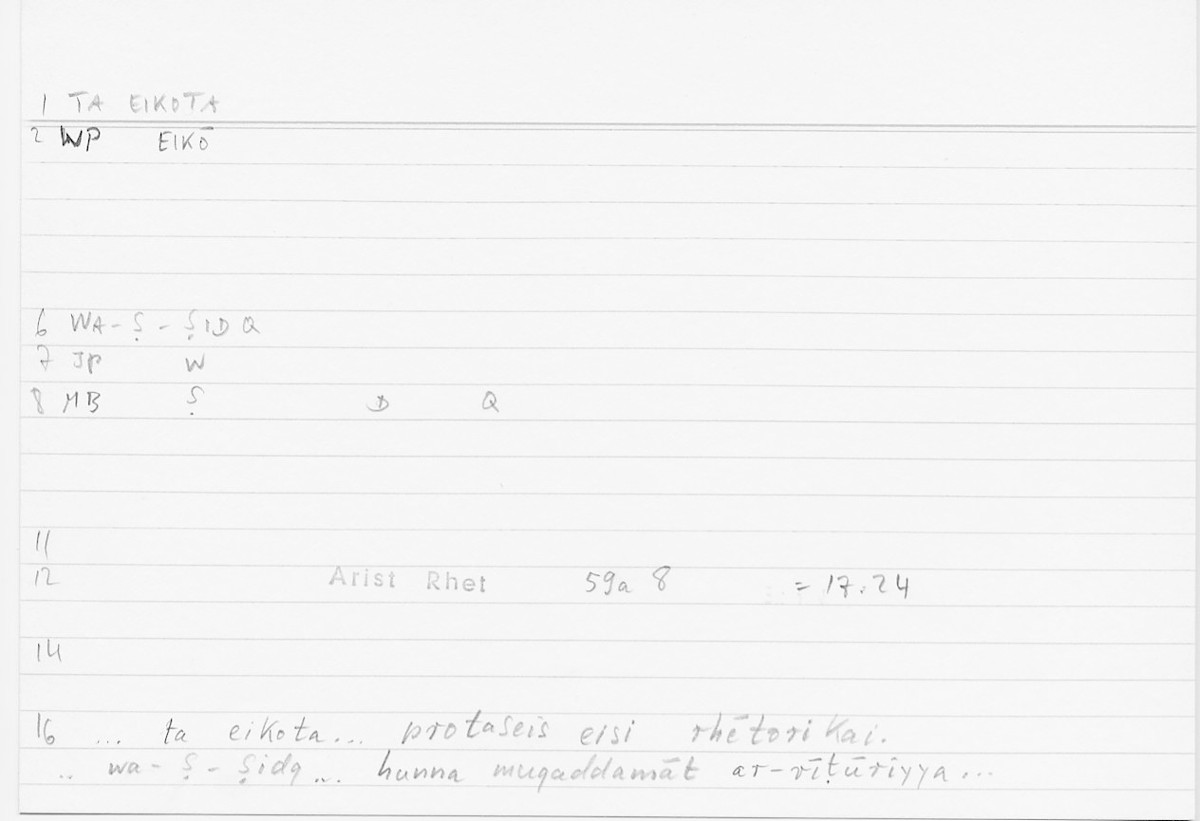 1 TA EIKOTA
2 WP EIKŌ
6 WA-Ṣ-ṢIDQ
7 JP W
8 MB Ṣ D Q
11
12 Arist Rhet 59a 8 = 17.24
14
16 ... ta eikota... protaseis eisi rhētorikai.
.. wa-ṣ-ṣidq ... hunna muqaddamāt ar-rīṭūriyya...